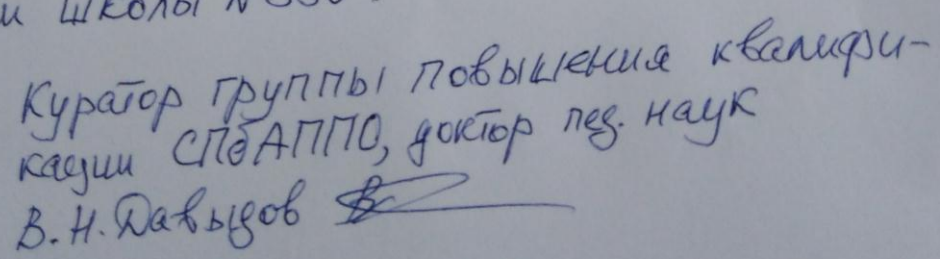 и школы №
Куратор группы повышения квалифи-
кации СПбАППО, доктор пед. наук
В. Н. Давыдов